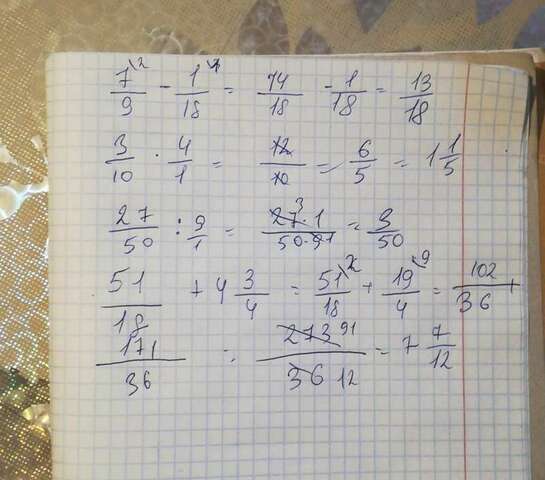 7\2/9 - 1\1/18 = 14/18 - 1/18 = 13/18
3/10 · 4/1 = 12/10 = 6/5 = 1 1/5
27/50 : 9/1 = 27 3 · 1/50 · 9 1 = 3/50
51/18 + 4 3/4 = 51\2/18 + 19\9/4 = 102/36 +
171/36 = 273 91/36 12 = 7 7/12